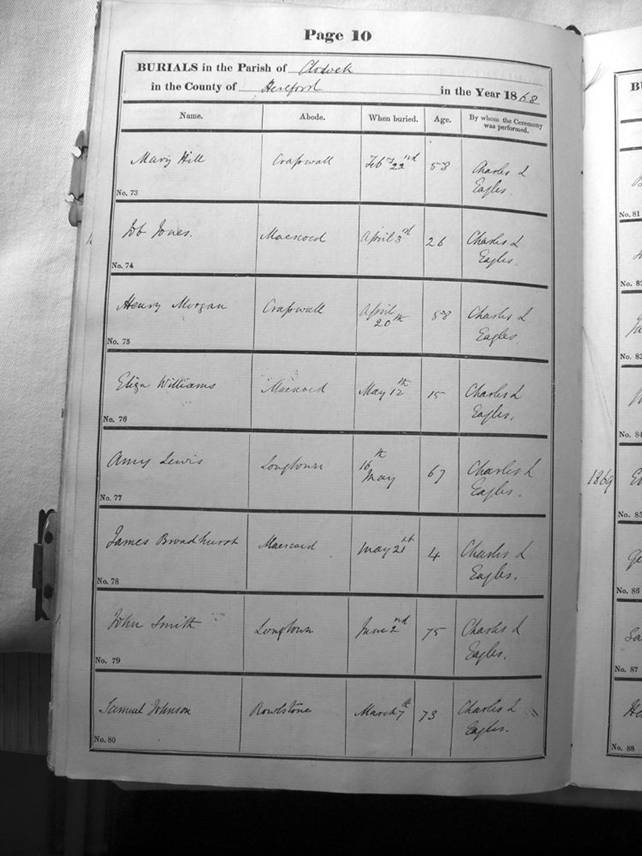 Page 10
BURIALS in the Parish of Clodock
in the County of Hereford in the Year 1868
Name. Abode. When buried. Age. By whom the Ceremony was performed.
Mary Hill Craswall Feby 22nd 58 Charles L
Eagles.
No. 73
Job Jones. Maescoed April 3rd 26 Charles L
Eagles.
No. 74
Henry Morgan Craswall April 58 Charles L
20th Eagles
No. 75
Eliza Williams Maescoed May 12th 15 Charles L
Eagles.
No. 76
Amy Lewis Longtown 16th 67 Charles L
May Eagles.
No. 77
James Broadhurst Maescoed May 21st 4 Charles L
Eagles.
No. 78
John Smith Longtown June 2nd 75 Charles L
Eagles.
No. 79
Samuel Johnson Rowlstone March 7th 73 Charles L
Eagles.
No. 80
No. 81
1869
No. 84
No. 85
No. 86
No. 87
No. 88